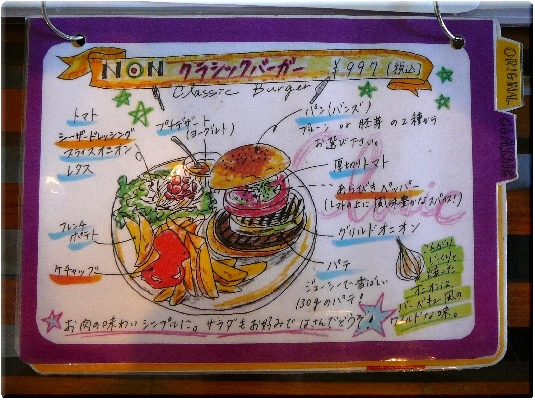 NON クラシックバーガー ¥997(税込)
Classic Burger
ORIGINAL
トマト
シーザードレッシング
スライスオニオン
レタス
プチデザート
(ヨーグルト)
パン(バンズ)
プレーン or 胚芽 の2種から
お選び下さい。
厚切りトマト
あらびきペッパー
(レタスの上に風味豊かなスパイス!)
グリルドオニオン
フレンチ
ポテト
ケチャップ
パテ
ジューシーで香ばしい
130gのパテ!
こんがり
じっくりと
焼いた
オニオンは
バーベキュー風の
ワイルドな味。
お肉の味わいシンプルに。サラダもお好みではさんでどうぞ